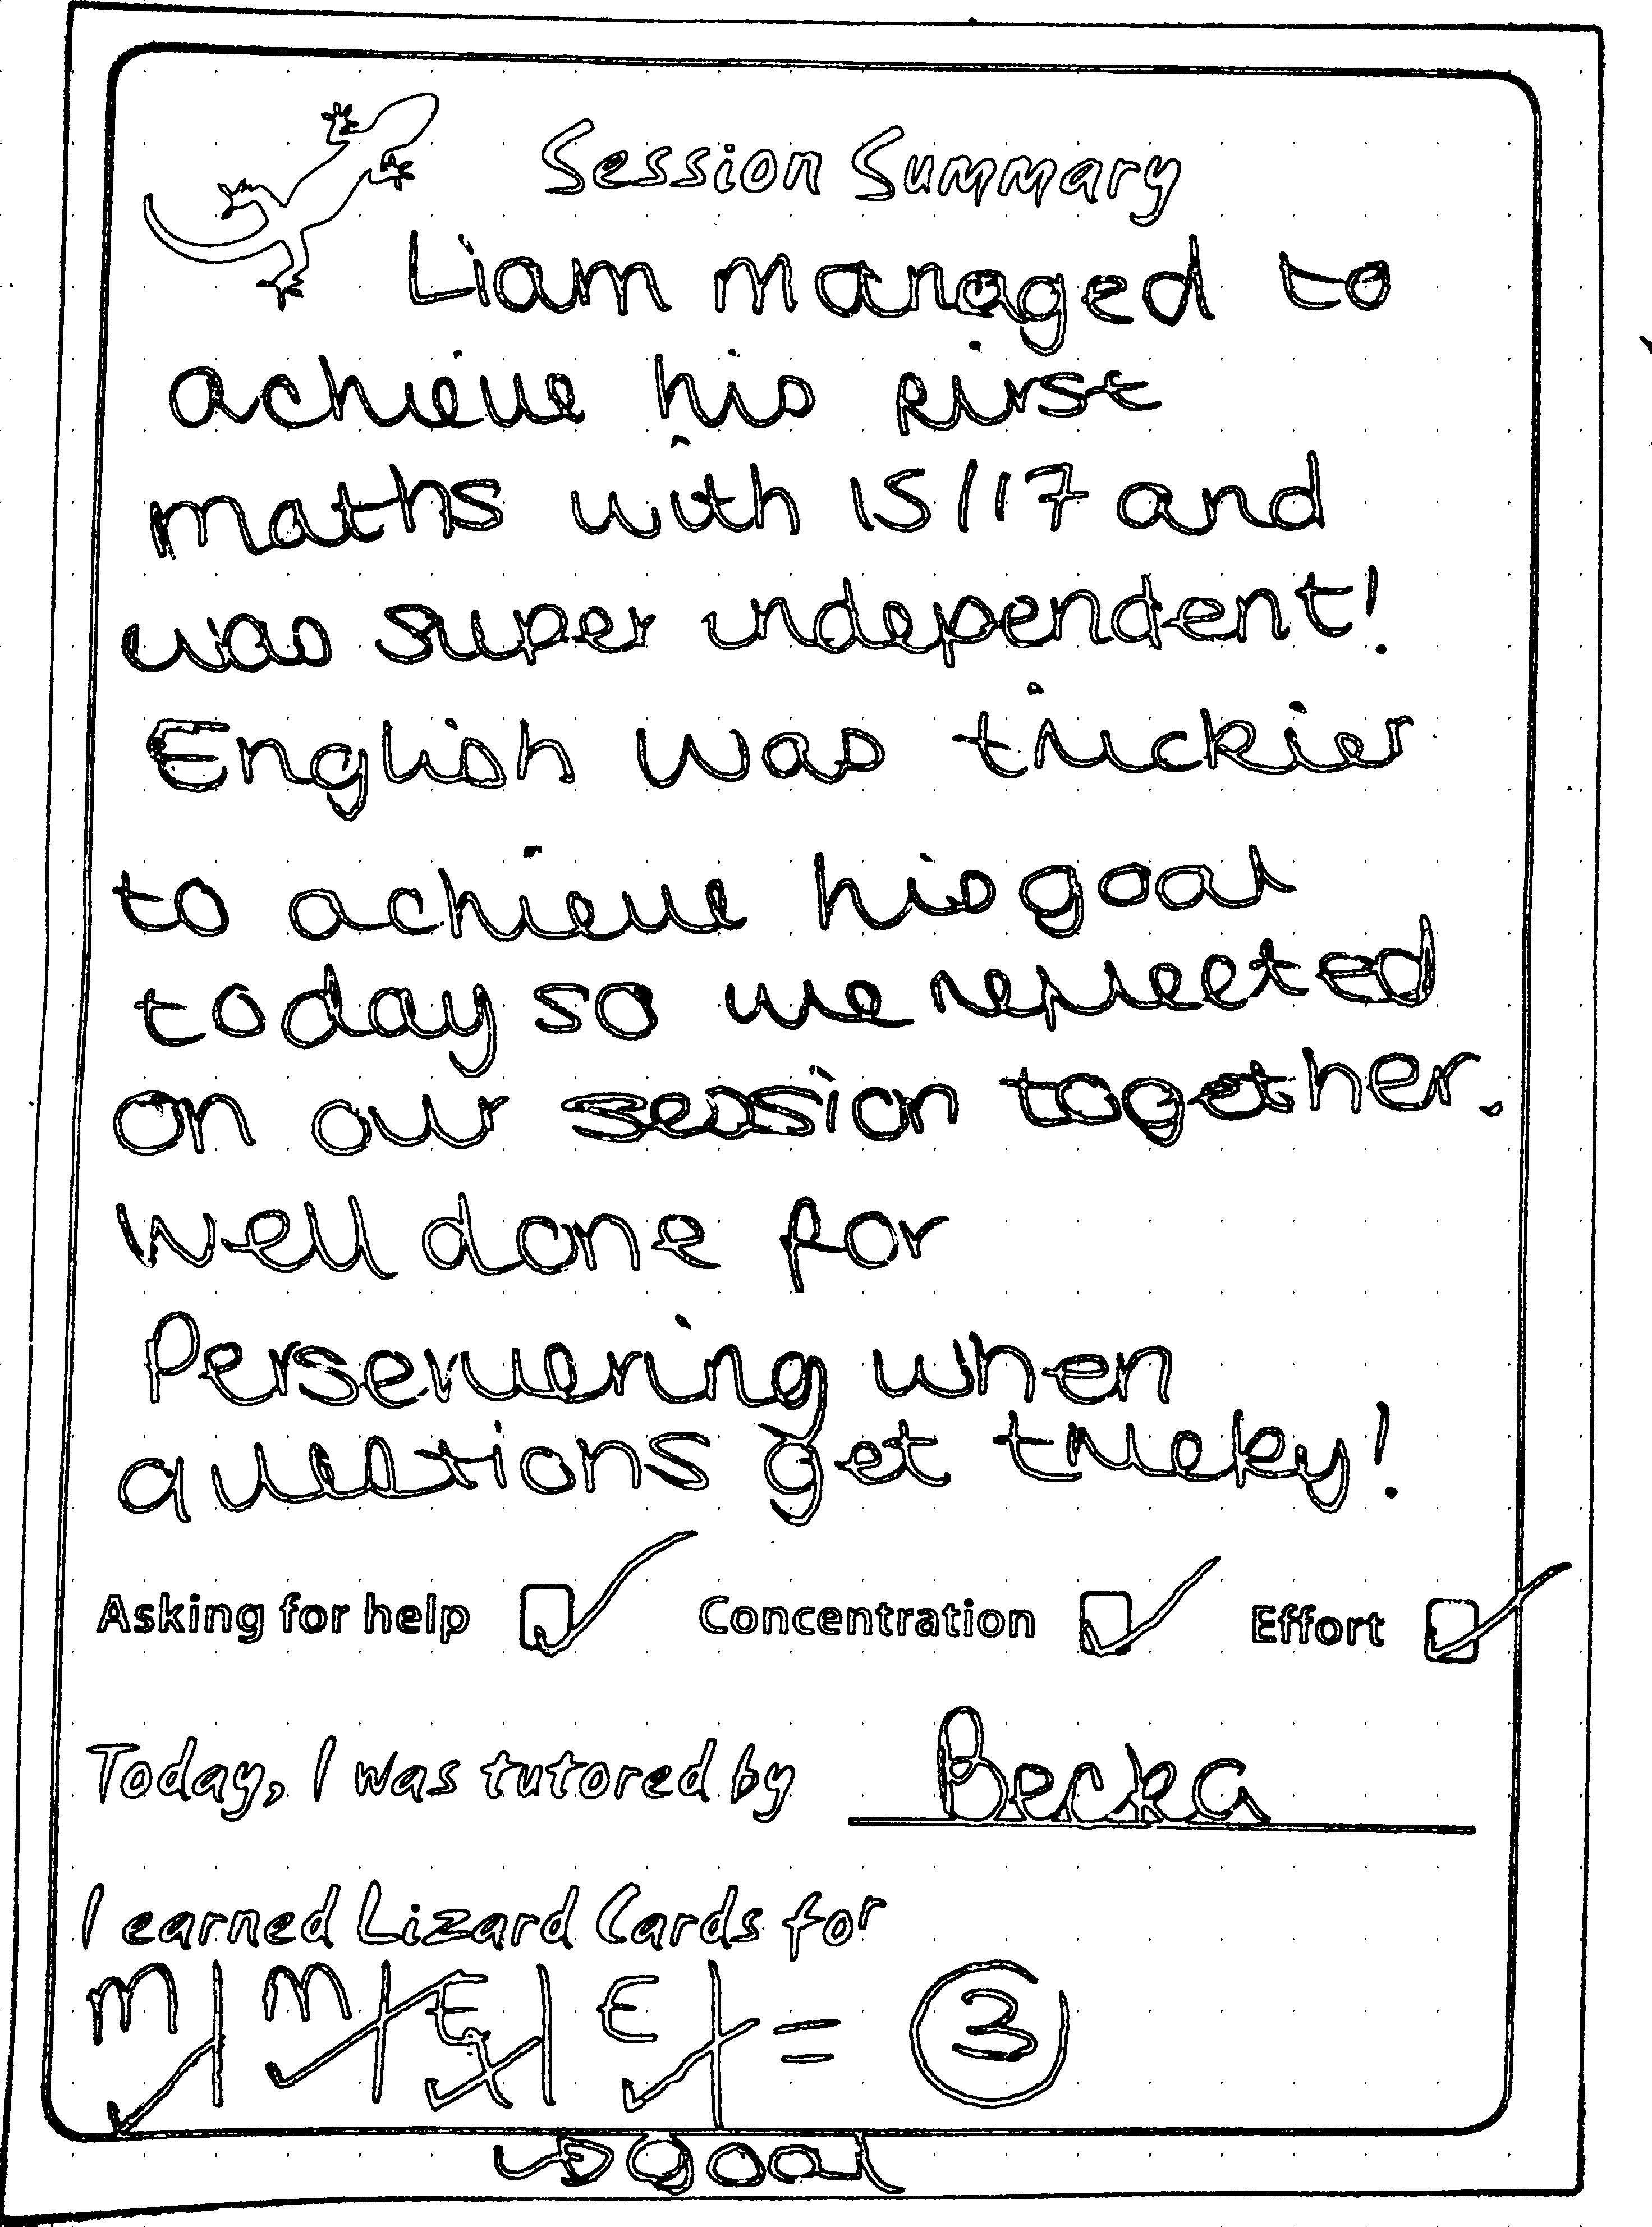 Session Summary
Liam managed to
achieve his first
maths with 15/17 and
was super independent!
English was trickier
to achieve his goal
today so we reflected
on our session together.
Well done for
Perservering when
questions get tricky!
Asking for help Concentration Effort
Today, I was tutored by Becka
I earned Lizard Cards for
M | M | E | E | = 3
goal